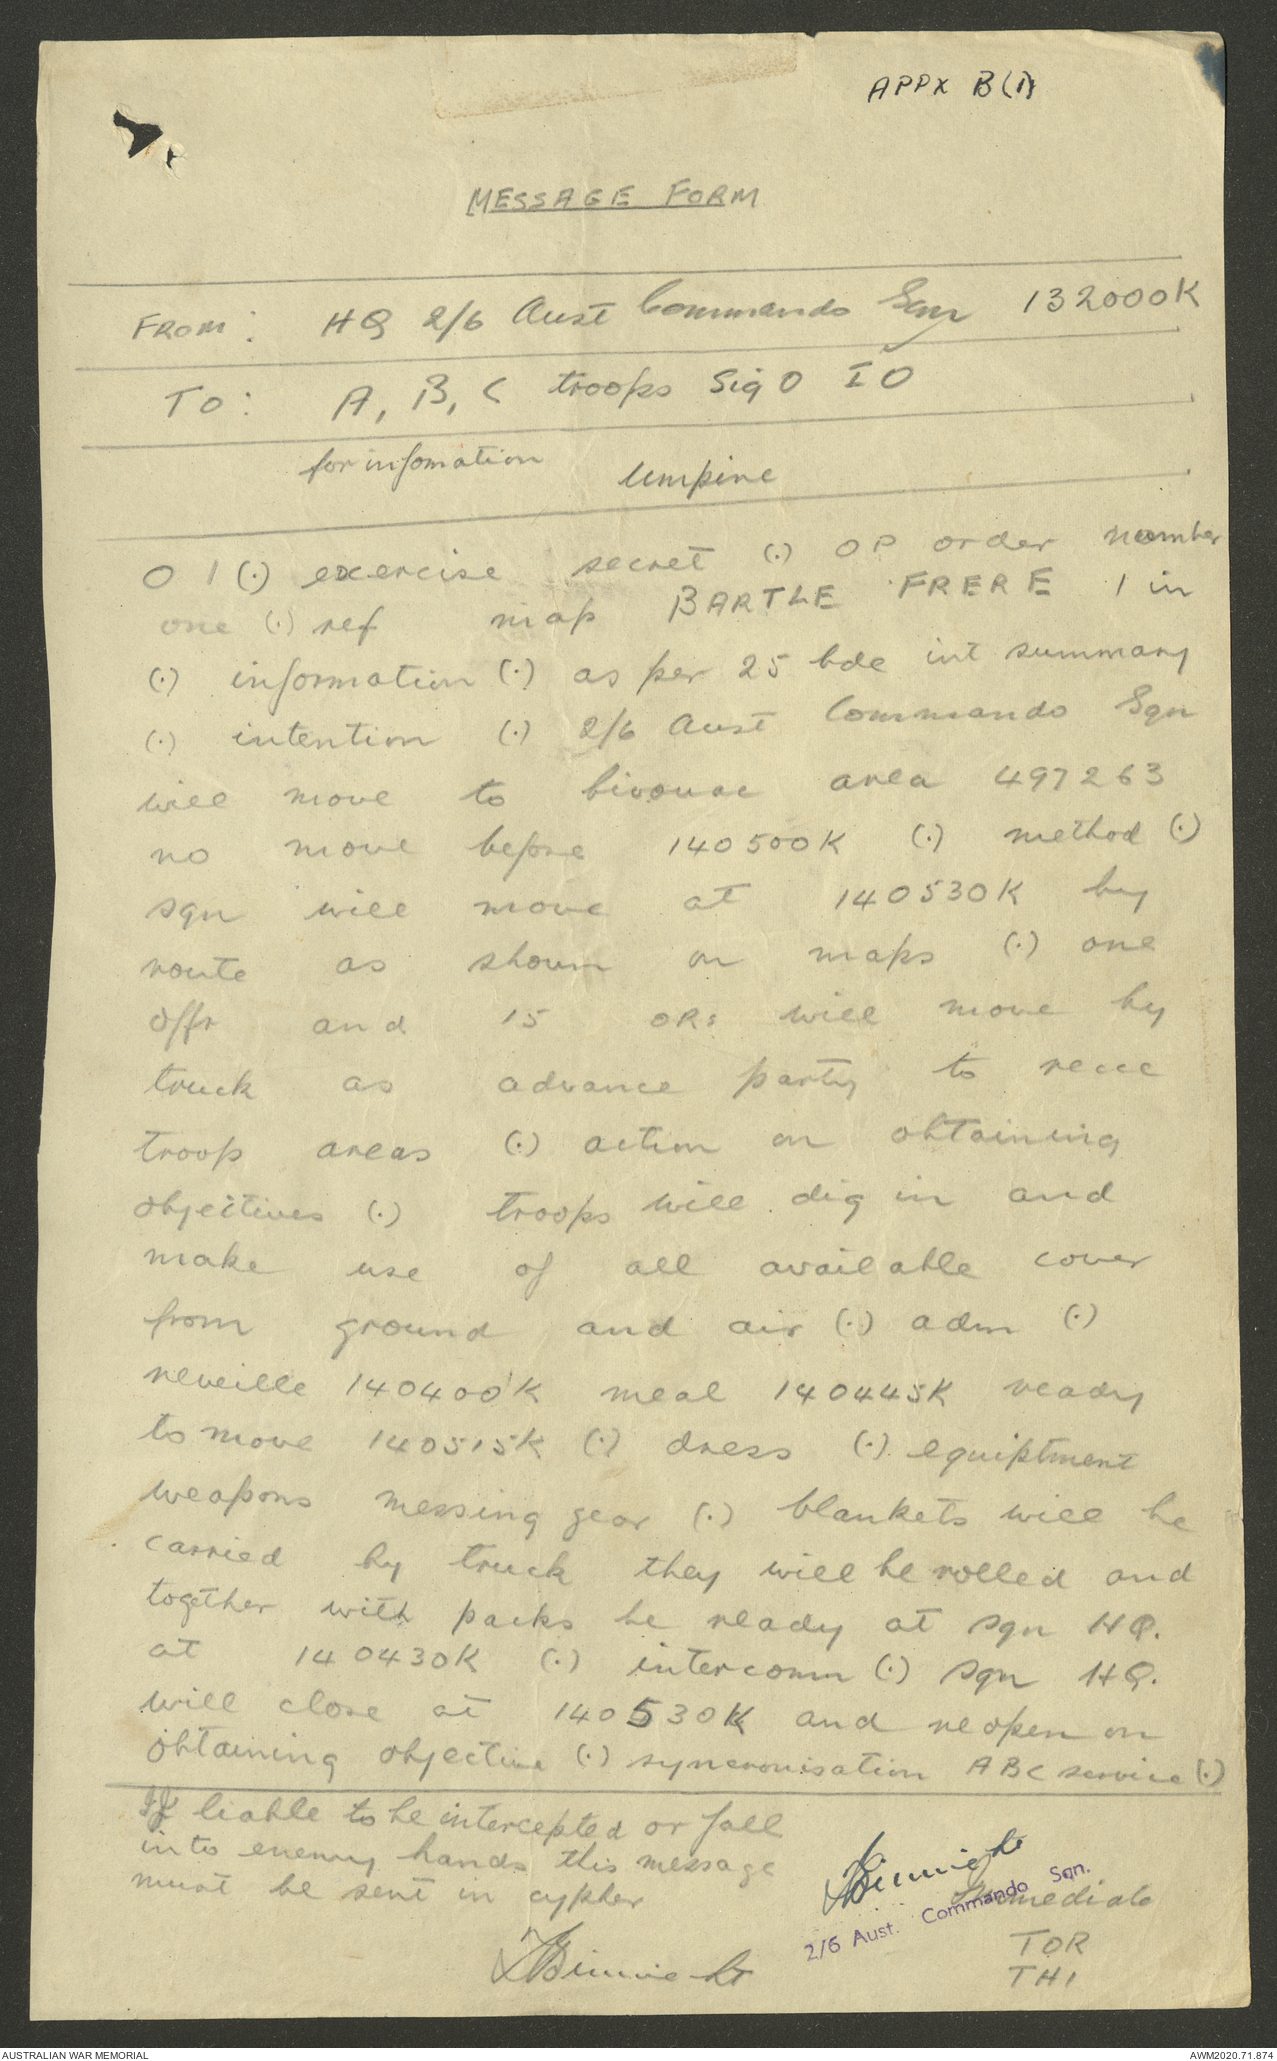 APPX B(1)
MESSAGE FORM
FROM: HQ 2/6 Aust Commando Sqn 132000K
To: A, B, C troops Sig O IO
for infomation umpire
O 1 (.) exercise secret (.) OP order number
one (.) ref map BARTLE FRERE 1 in
(.) information (.) as per 25 bde int summary
(.) intention (.) 2/6 Aust Commando Sqn
will move to bivouac area 497263
no move before 140500K (.) method (.)
sqn will move at 140530K by
route as shown on maps (.) one
offr and 15 ORs will move by
truck as advance party to recce
troop areas (.) action on obtaining
objectives (.) troops will dig in and
make use of all available cover
from ground and air (.) adm (.)
reveille 140400K meal 140445K ready
to move 140515K (.) dress (.) equiptment
weapons messing gear (.) blankets will be
carried by truck they will be rolled and
together with packs be ready at sqn HQ.
at 140430K (.) intercomn (.) sqn HQ.
will close at 140530K and reopen on
obtaining objective (.) syncronisation ABC service (.)
If liable to be intercepted or fall
into enemy hands this message
must be sent in cypher
Immediate
2/6 Aust. Commando Sqn.
TOR
THI
AUSTRALIAN WAR MEMORIAL
AWM2020.71.874